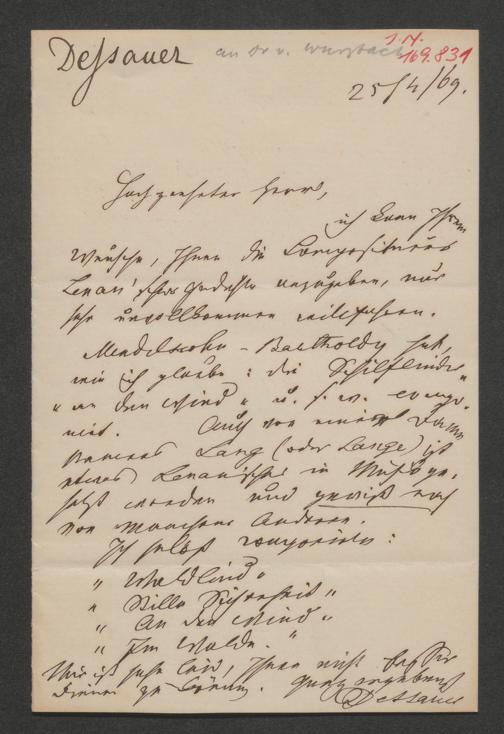 Dessauer an Dr v. Wurzbach I.N. 169.831
25/4/69.
Hochgeehrter Herr,
ich kann Ihrem
Wunsche, Ihnen die Compositeurs
Lenau'scher Gedichte anzugeben, nur
sehr unvollkommen willfahren.
Mendelssohn-Bartholdy hat,
wie ich glaube: die Schilflieder
„an den Wind" u. s. w. compo-
nirt. Auch von einer Dame
Namens Lang (oder Lange) ist
etwas Lenauisches in Musik ge-
setzt worden und gewiß noch
von manchen Anderen.
Ich selbst componirte:
„Waldlied"
„Stille Sicherheit"
„An den Wind"
„Im Walde."
Mir ist sehr leid, Ihnen nicht besser
dienen zu können. Ganz ergebenst
Dessauer